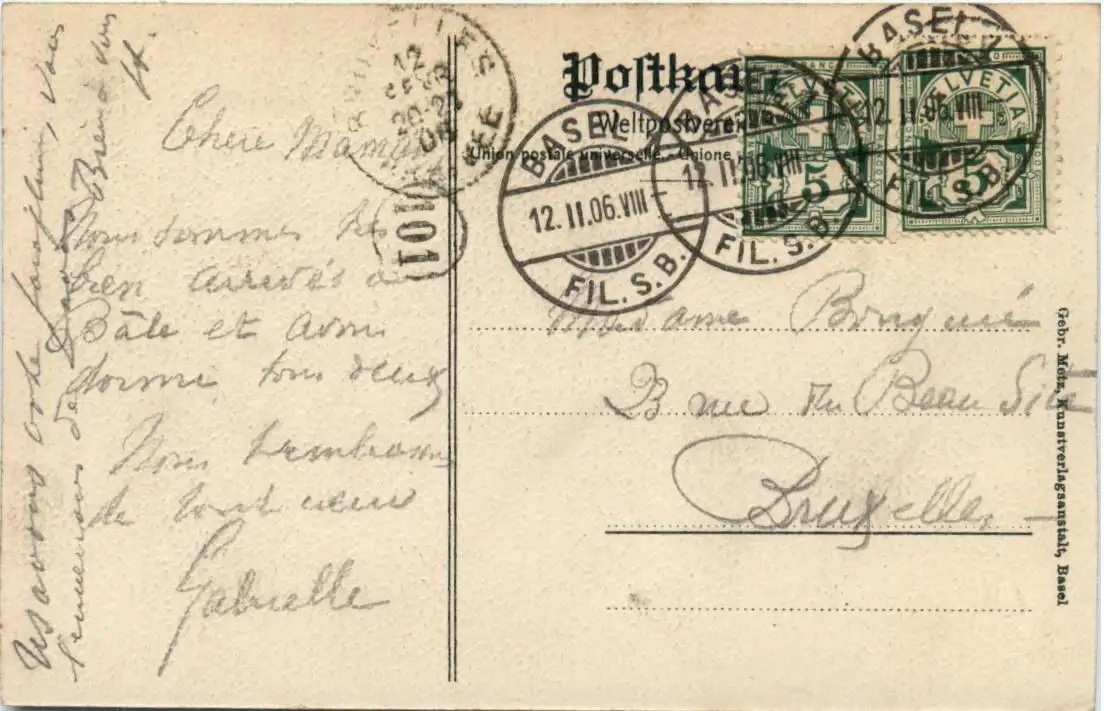 Chère Maman
Nous sommes très
bien arrivés à
Bâle et avons
dormi tous deux
Nous t'embrassons
de tout cœur
Gabrielle
Postkarte
Weltpostverein
Union postale universelle. - Unione
BRUXELLES
12
FEVR
20-21
1906
ARRIVEE
101
BASEL
12.II.06.VIII
FIL. S.B.
BASEL
12.II.06.VIII
FIL. S.B.
BASEL
12.II.06.VIII
FIL. S.B.
HELVETIA
5
HELVETIA
5
FRANCO
Madame Bouquié
3 rue du Beau Site
Bruxelles
Gebr. Metz, Kunstverlagsanstalt, Basel